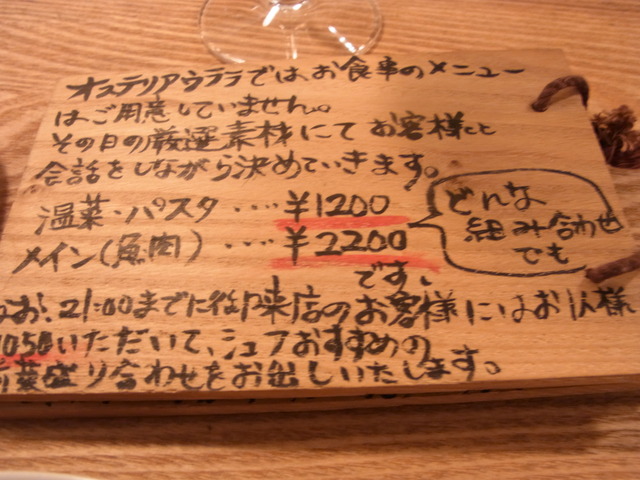 オステリアウララではお食事のメニュー
はご用意していません。
その日の厳選素材にてお客様と
会話をしながら決めていきます。
温菜・パスタ ‥‥ ¥1200
メイン(魚肉) ‥‥ ¥2200
です。
どんな
組み合わせ
でも
なお、21:00までに御来店のお客様にはお1人様
1050いただいて、シェフおすすめの
前菜盛り合わせをお出しいたします。